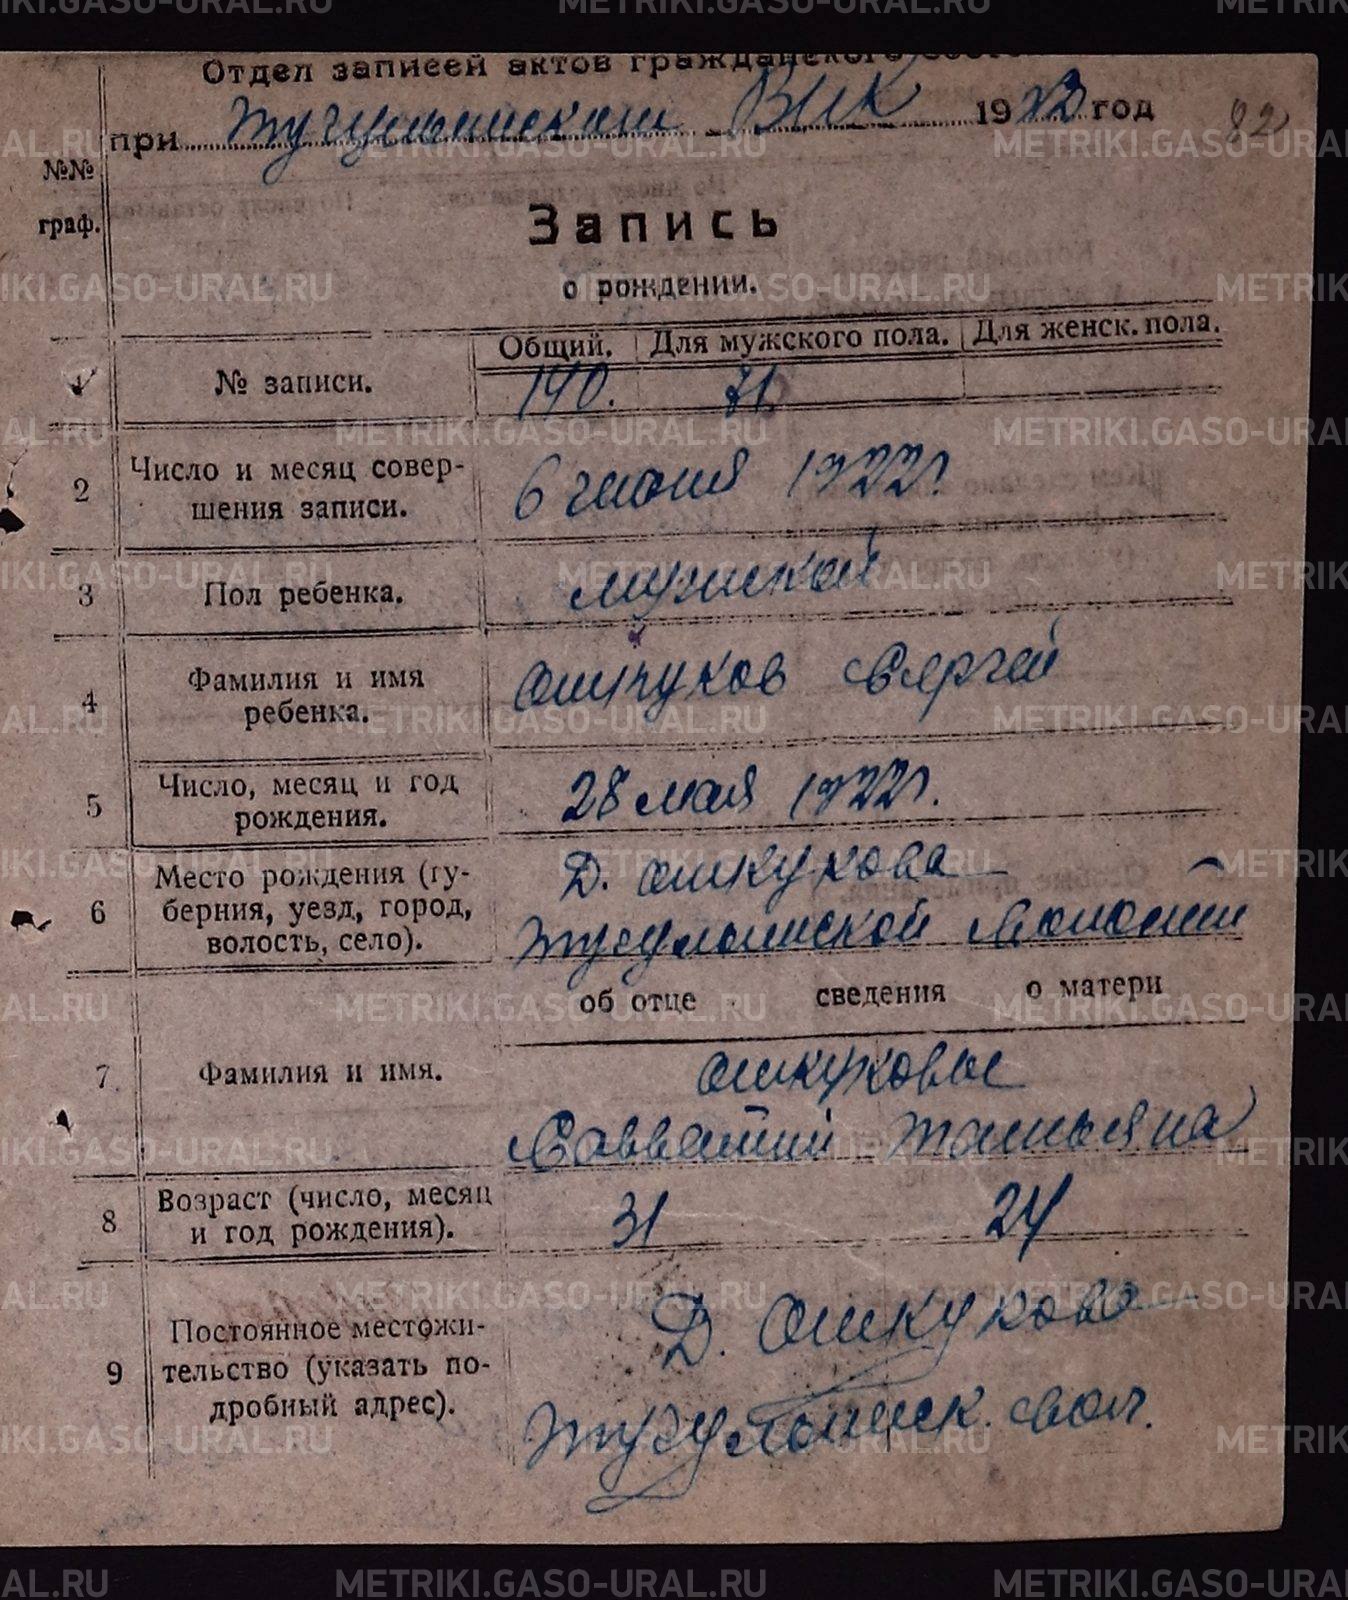 Отдел записей актов гражданского
при Тугулымском ВИК 1922 год 82
№№
граф.
Запись
о рождении.
Общий. Для мужского пола. Для женск. пола.
1 № записи. 140. 71.
2 Число и месяц совер-
шения записи. 6 июня 1922 г.
3 Пол ребенка. мужской
4 Фамилия и имя
ребенка. Ошкуков Сергей
5 Число, месяц и год
рождения. 28 мая 1922 г.
6 Место рождения (гу-
берния, уезд, город,
волость, село). Д. Ошкукова
Тугулымской волости
об отце сведения о матери
7 Фамилия и имя. Ошкуковы
Савватий Татьяна
8 Возраст (число, месяц
и год рождения). 31 24
9 Постоянное местожи-
тельство (указать по-
дробный адрес). Д. Ошкукова
Тугулымск. вол.
METRIKI.GASO-URAL.RU